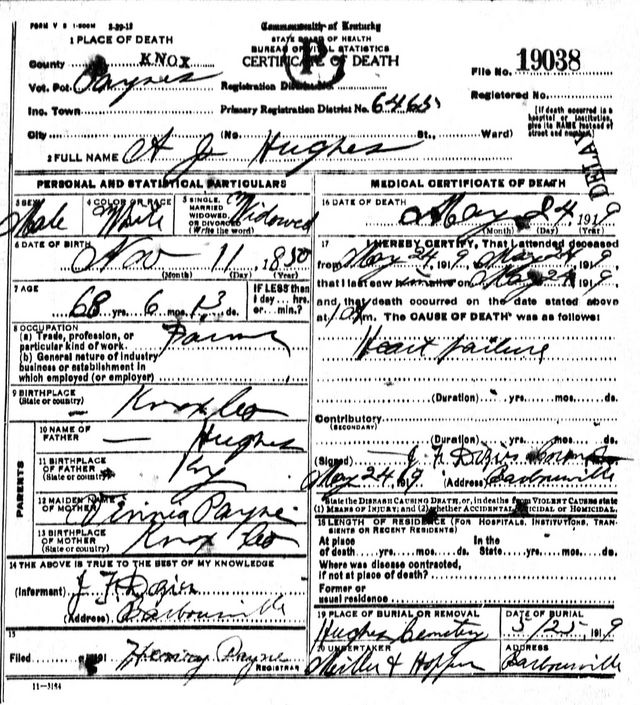 FORM V S 1-500M 3-29-18
Commonwealth of Kentucky
STATE BOARD OF HEALTH
BUREAU OF VITAL STATISTICS
CERTIFICATE OF DEATH
1 PLACE OF DEATH
County KNOX
Vot. Pct. Paynes
Inc. Town
City (No. St., Ward)
Registration District No.
Primary Registration District No. 6465
File No. 19038
Registered No.
[If death occurred in a hospital or institution, give its NAME instead of street and number.]
DELAY
2 FULL NAME A J Hughes
PERSONAL AND STATISTICAL PARTICULARS
3 SEX Male
4 COLOR OR RACE White
5 SINGLE, MARRIED WIDOWED, OR DIVORCED (Write the word) Widowed
6 DATE OF BIRTH Nov 11, 1850
(Month) (Day) (Year)
7 AGE 68 yrs. 6 mos. 13 ds.
IF LESS than 1 day... hrs. or... min.?
8 OCCUPATION
(a) Trade, profession, or particular kind of work Farmer
(b) General nature of industry business or establishment in which employed (or employer)
9 BIRTHPLACE (State or country) Knox Co
PARENTS
10 NAME OF FATHER — Hughes
11 BIRTHPLACE OF FATHER (State or country) Ky
12 MAIDEN NAME OF MOTHER Vinnia Payne
13 BIRTHPLACE OF MOTHER (State or country) Knox Co
14 THE ABOVE IS TRUE TO THE BEST OF MY KNOWLEDGE
(Informant)
(Address) Barbourville
15
Filed 191 Henry Payne
REGISTRAR
11-3184
MEDICAL CERTIFICATE OF DEATH
16 DATE OF DEATH May 24, 1919
(Month) (Day) (Year)
17 I HEREBY CERTIFY, That I attended deceased
from May 24, 1919, May 24, 1919,
that I last saw h alive on May 24, 1919,
and that death occurred on the date stated above
at m. The CAUSE OF DEATH* was as follows:
Heart failure
(Duration) yrs. mos. ds.
Contributory
(SECONDARY)
(Duration) yrs. mos. ds.
(Signed)
May 24, 1919 (Address) Barbourville
*State the DISEASE CAUSING DEATH, or, in deaths from VIOLENT CAUSES state (1) MEANS OF INJURY; and (2) whether ACCIDENTAL, SUICIDAL or HOMICIDAL.
18 LENGTH OF RESIDENCE (FOR HOSPITALS, INSTITUTIONS, TRANSIENTS OR RECENT RESIDENTS)
At place of death yrs. mos. ds. In the State yrs. mos. ds.
Where was disease contracted, if not at place of death?
Former or usual residence
19 PLACE OF BURIAL OR REMOVAL Hughes Cemetery
DATE OF BURIAL 5/25, 1919
20 UNDERTAKER Miller & Hopper
ADDRESS Barbourville